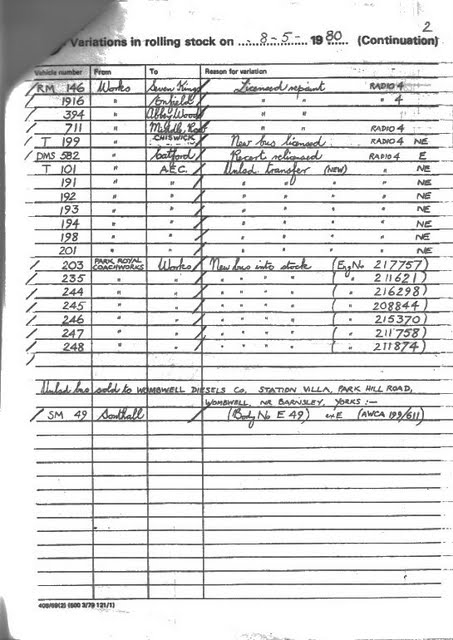 2
Variations in rolling stock on 8-5- 1980 (Continuation)
Vehicle number From To Reason for variation
RM 146 Works Seven Kings Licensed repaint RADIO 4
1916 " Enfield " " " 4
394 " Abbey Wood " "
711 " Middle Row " " RADIO 4
T 199 " CHISWICK New bus licensed RADIO 4 NE
DMS 582 " Catford Recert relicensed RADIO 4 E
T 101 " A.E.C. Unlsd. transfer (NEW) " NE
191 " " " " " " NE
192 " " " " " " NE
193 " " " " " " NE
194 " " " " " " NE
198 " " " " " " NE
201 " " " " " " NE
203 PARK ROYAL COACHWORKS Works New bus into stock (Eng No 217757)
235 " " " " " " ( " 211621)
244 " " " " " " ( " 216298)
245 " " " " " " ( " 208844)
246 " " " " " " ( " 215370)
247 " " " " " " ( " 211758)
248 " " " " " " ( " 211874)
Unlsd bus sold to WOMBWELL DIESELS Co. STATION VILLA, PARK HILL ROAD,
WOMBWELL, NR BARNSLEY, YORKS :—
SM 49 Southall (Body No E 49) ex E (AWCA 199/611)
409/69(2) (500 3/79 121/1)